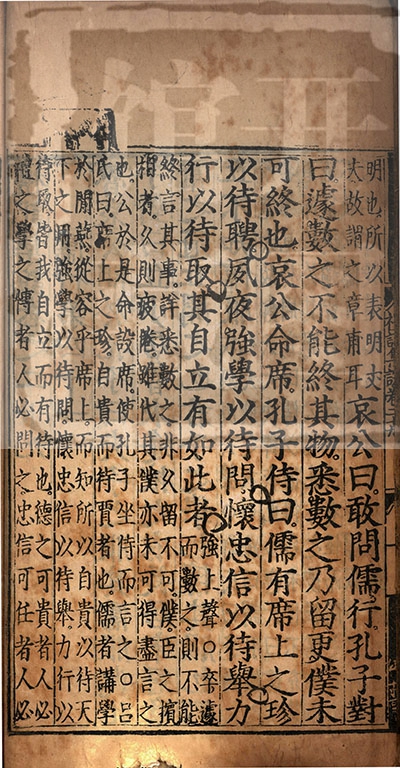 明也所以表明丈
夫故謂之章甫耳
哀公曰敢問儒行孔子對
曰遽數之不能終其物悉數之乃留更僕未
可終也哀公命席孔子侍曰儒有席上之珍
以待聘夙夜強學以待問懷忠信以待舉力
行以待取其自立有如此者
強上聲○卒遽
而數之則不能
終言其事詳悉數之非久留不可僕臣之擯
相者久則疲倦雖代其僕亦未可得盡言之
也公於是命設席使孔子坐侍而言之○呂
氏曰席上之珍自貴而待賈者也儒者講學
於閒燕從容乎席上而知所以自貴以待天
下之用強學以待問懷忠信以待舉力行以
待取皆我自立而有待也德之可貴者人必
禮之學之博者人必問之忠信可任者人必